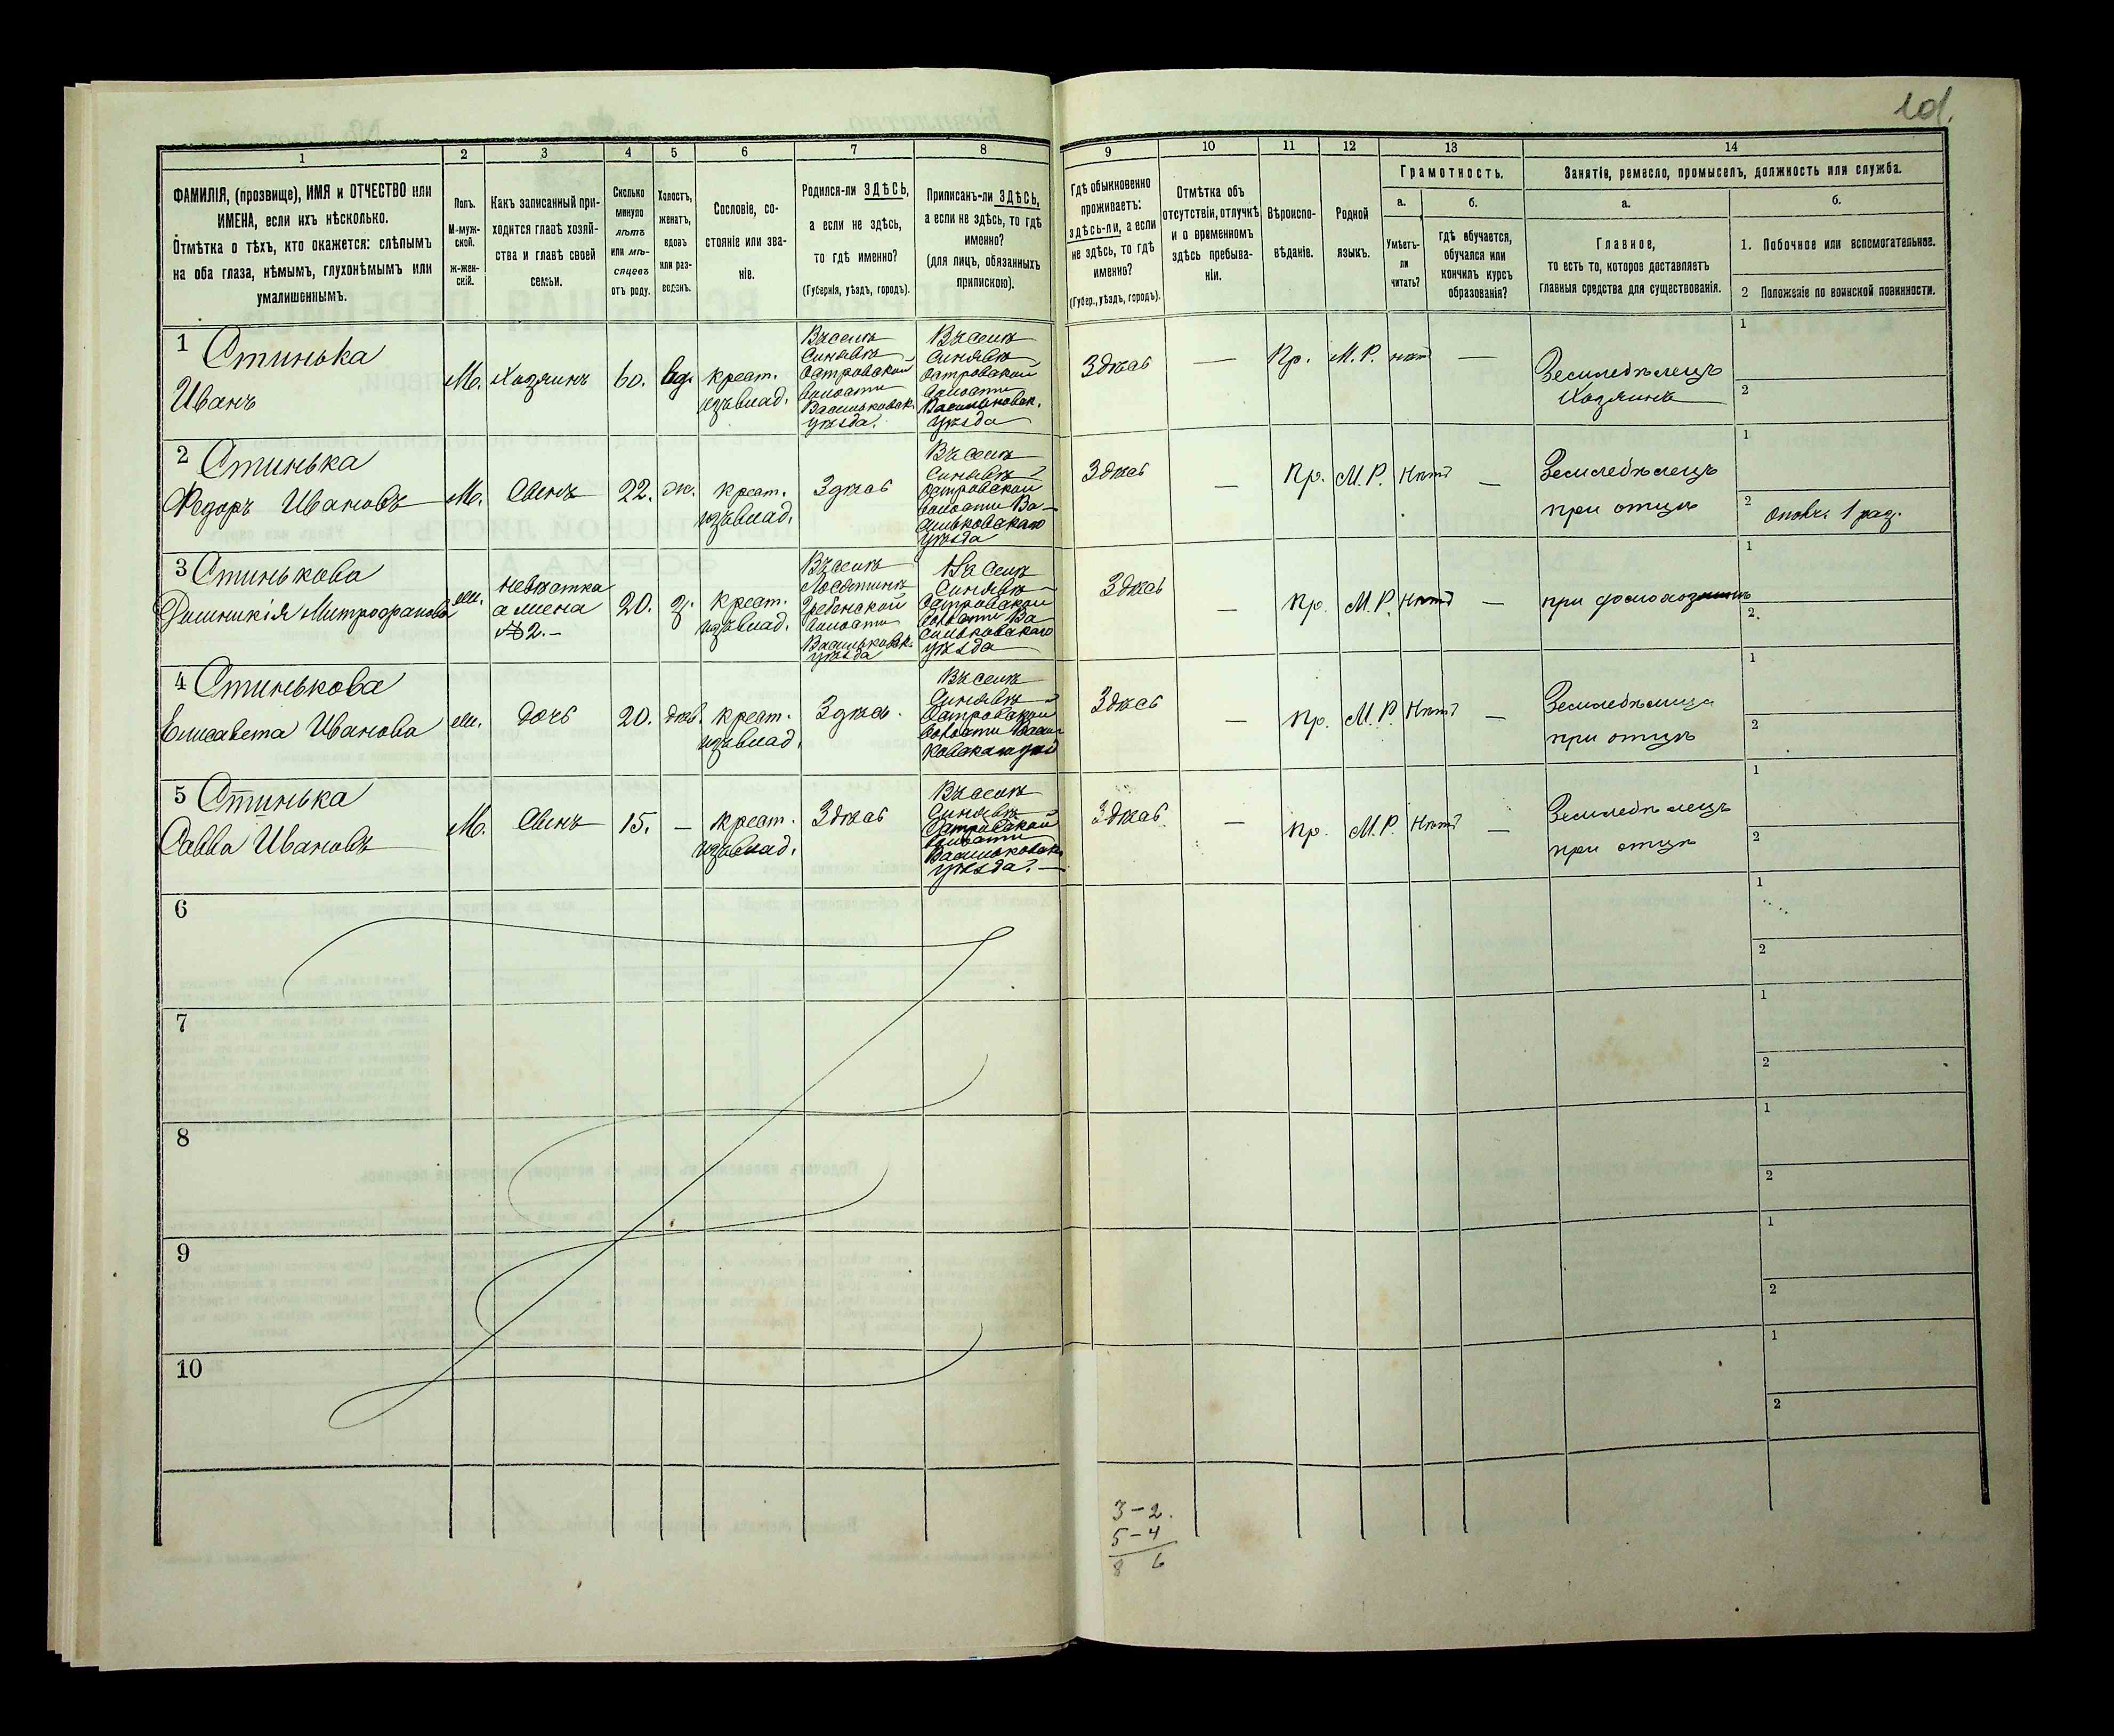 1d.
1 2 3 4 5 6 7 8 9 10 11 12 13 14
ФАМИЛІЯ, (прозвище), ИМЯ и ОТЧЕСТВО или
ИМЕНА, если ихъ нѣсколько.
Отмѣтка о тѣхъ, кто окажется: слѣпымъ
на оба глаза, нѣмымъ, глухонѣмымъ или
умалишеннымъ.
Полъ.
М-муж-
ской.
Ж-жен-
скій.
Какъ записанный при-
ходится главѣ хозяй-
ства и главѣ своей
семьи.
Сколько
минуло
лѣтъ
или мѣ-
сяцевъ
отъ роду.
Холостъ,
женатъ,
вдовъ
или раз-
веденъ.
Сословіе, со-
стояніе или зва-
ніе.
Родился-ли ЗДѢСЬ,
а если не здѣсь,
то гдѣ именно?
(Губернія, уѣздъ, городъ).
Приписанъ-ли ЗДѢСЬ,
а если не здѣсь, то гдѣ
именно?
(для лицъ, обязанныхъ
припискою).
Гдѣ обыкновенно
проживаетъ:
здѣсь-ли, а если
не здѣсь, то гдѣ
именно?
(Губер., уѣздъ, городъ).
Отмѣтка объ
отсутствіи, отлучкѣ
и о временномъ
здѣсь пребыва-
ніи.
Вѣроиспо-
вѣданіе.
Родной
языкъ.
Грамотность.
а.
Умѣетъ-
ли
читать?
б.
гдѣ обучается,
обучался или
кончилъ курсъ
образованія?
Занятіе, ремесло, промыселъ, должность или служба.
а.
Главное,
то есть то, которое доставляетъ
главныя средства для существованія.
б.
1. Побочное или вспомогательное.
2 Положеніе по воинской повинности.
1 Стинька
Иванъ
М.
Хозяинъ
60.
вд.
крест.
изъ влад.
Въ селѣ
Синявкѣ
Островской
волости
Васильковск.
уѣзда.
Въ селѣ
Синявкѣ
Островской
волости
Васильковск.
уѣзда
Здѣсь
—
Пр.
М. Р.
нѣтъ
—
Земледѣлецъ
Хозяинъ
1
2
2 Стинька
Федоръ Ивановъ
М.
Сынъ
22.
ж.
крест.
изъ влад.
Здѣсь
Въ селѣ
Синявкѣ
Островской
волости Ва-
сильковскаго
уѣзда
Здѣсь
—
Пр.
М. Р.
Нѣтъ
—
Земледѣлецъ
при отцѣ
1
2 Ополч. 1 раз.
3 Стинькова
Митрофанова
ж.
невѣстка
а жена
№ 2.—
20.
з.
крест.
изъ влад.
Въ селѣ
Гребенской
волости
Васильковск.
уѣзда
Въ селѣ
Синявкѣ
Островской
волости Ва
сильковскаго
уѣзда
Здѣсь
—
Пр.
М. Р.
Нѣтъ
—
при
1
2.
4 Стинькова
Елисавета Иванова
ж.
дочь
20.
дѣв.
крест.
изъ влад.
Здѣсь.
Въ селѣ
Синявкѣ
Островской
волости Василь
ковскаго
Здѣсь
—
Пр.
М. Р.
Нѣтъ
—
Земледѣлица
при отцѣ
1
2
5 Стинька
Савва Ивановъ
М.
Сынъ
15.
—
крест.
изъ влад.
Здѣсь
Въ селѣ
Синявкѣ
Островской
волости
Васильковск.
уѣзда.—
Здѣсь
—
Пр.
М. Р.
Нѣтъ
—
Земледѣлецъ
при отцѣ
1
2
6
1
2
7
1
2
8
1
2
9
1
2
10
1
2
3–2.
5–4
8 6